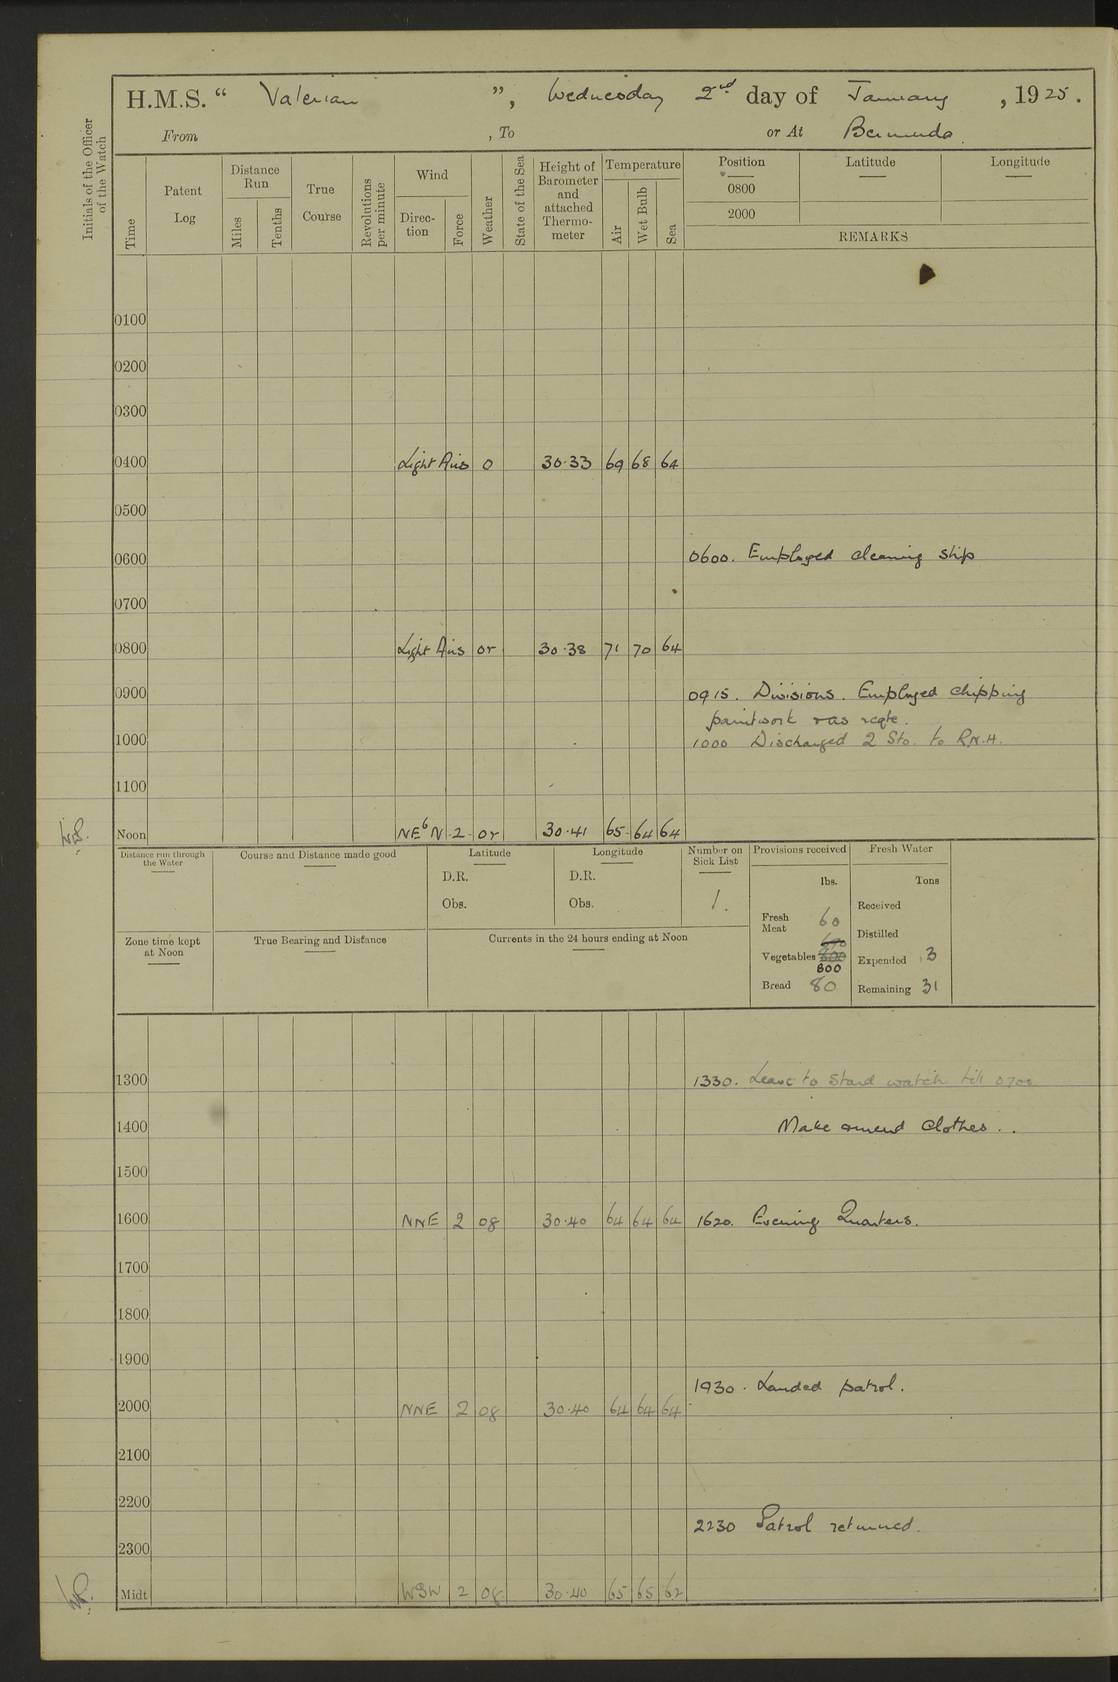 H.M.S. “ Valerian ”, Wednesday 2nd day of January, 1925.
From , To or At Bermuda.
Initials of the Officer of the Watch
Time
Patent Log
Distance Run
Miles
Tenths
True Course
Revolutions per minute
Wind
Direction
Force
Weather
State of the Sea
Height of Barometer and attached Thermometer
Temperature
Air
Wet Bulb
Sea
Position Latitude Longitude
0800
2000
REMARKS
0100
0200
0300
0400 Light Airs o 30.33 69 68 64
0500
0600 0600. Employed cleaning ship
0700
0800 Light Airs or 30.38 71 70 64
0900 0915. Divisions. Employed chipping
paintwork &as reqte.
1000 1000 Discharged 2 Sto. to R.N.H.
1100
Noon NEbN 2 or 30.41 65 64 64
Distance run through the Water
Course and Distance made good
Latitude
D.R.
Obs.
Longitude
D.R.
Obs.
Number on Sick List
1.
Provisions received
lbs.
Fresh Meat 60
Vegetables 800
Bread 80
Fresh Water
Tons
Received
Distilled
Expended 3
Remaining 31
Zone time kept at Noon
True Bearing and Distance
Currents in the 24 hours ending at Noon
1300 1330. Leave to Starbd watch till 0700
1400 Make & mend Clothes..
1500
1600 NNE 2 08 30.40 64 64 64 1620. Evening Quarters.
1700
1800
1900
1930. Landed patrol.
2000 NNE 2 08 30.40 64 64 64
2100
2200
2230 Patrol returned.
2300
Midt WSW 2 08 30.40 65 65 62